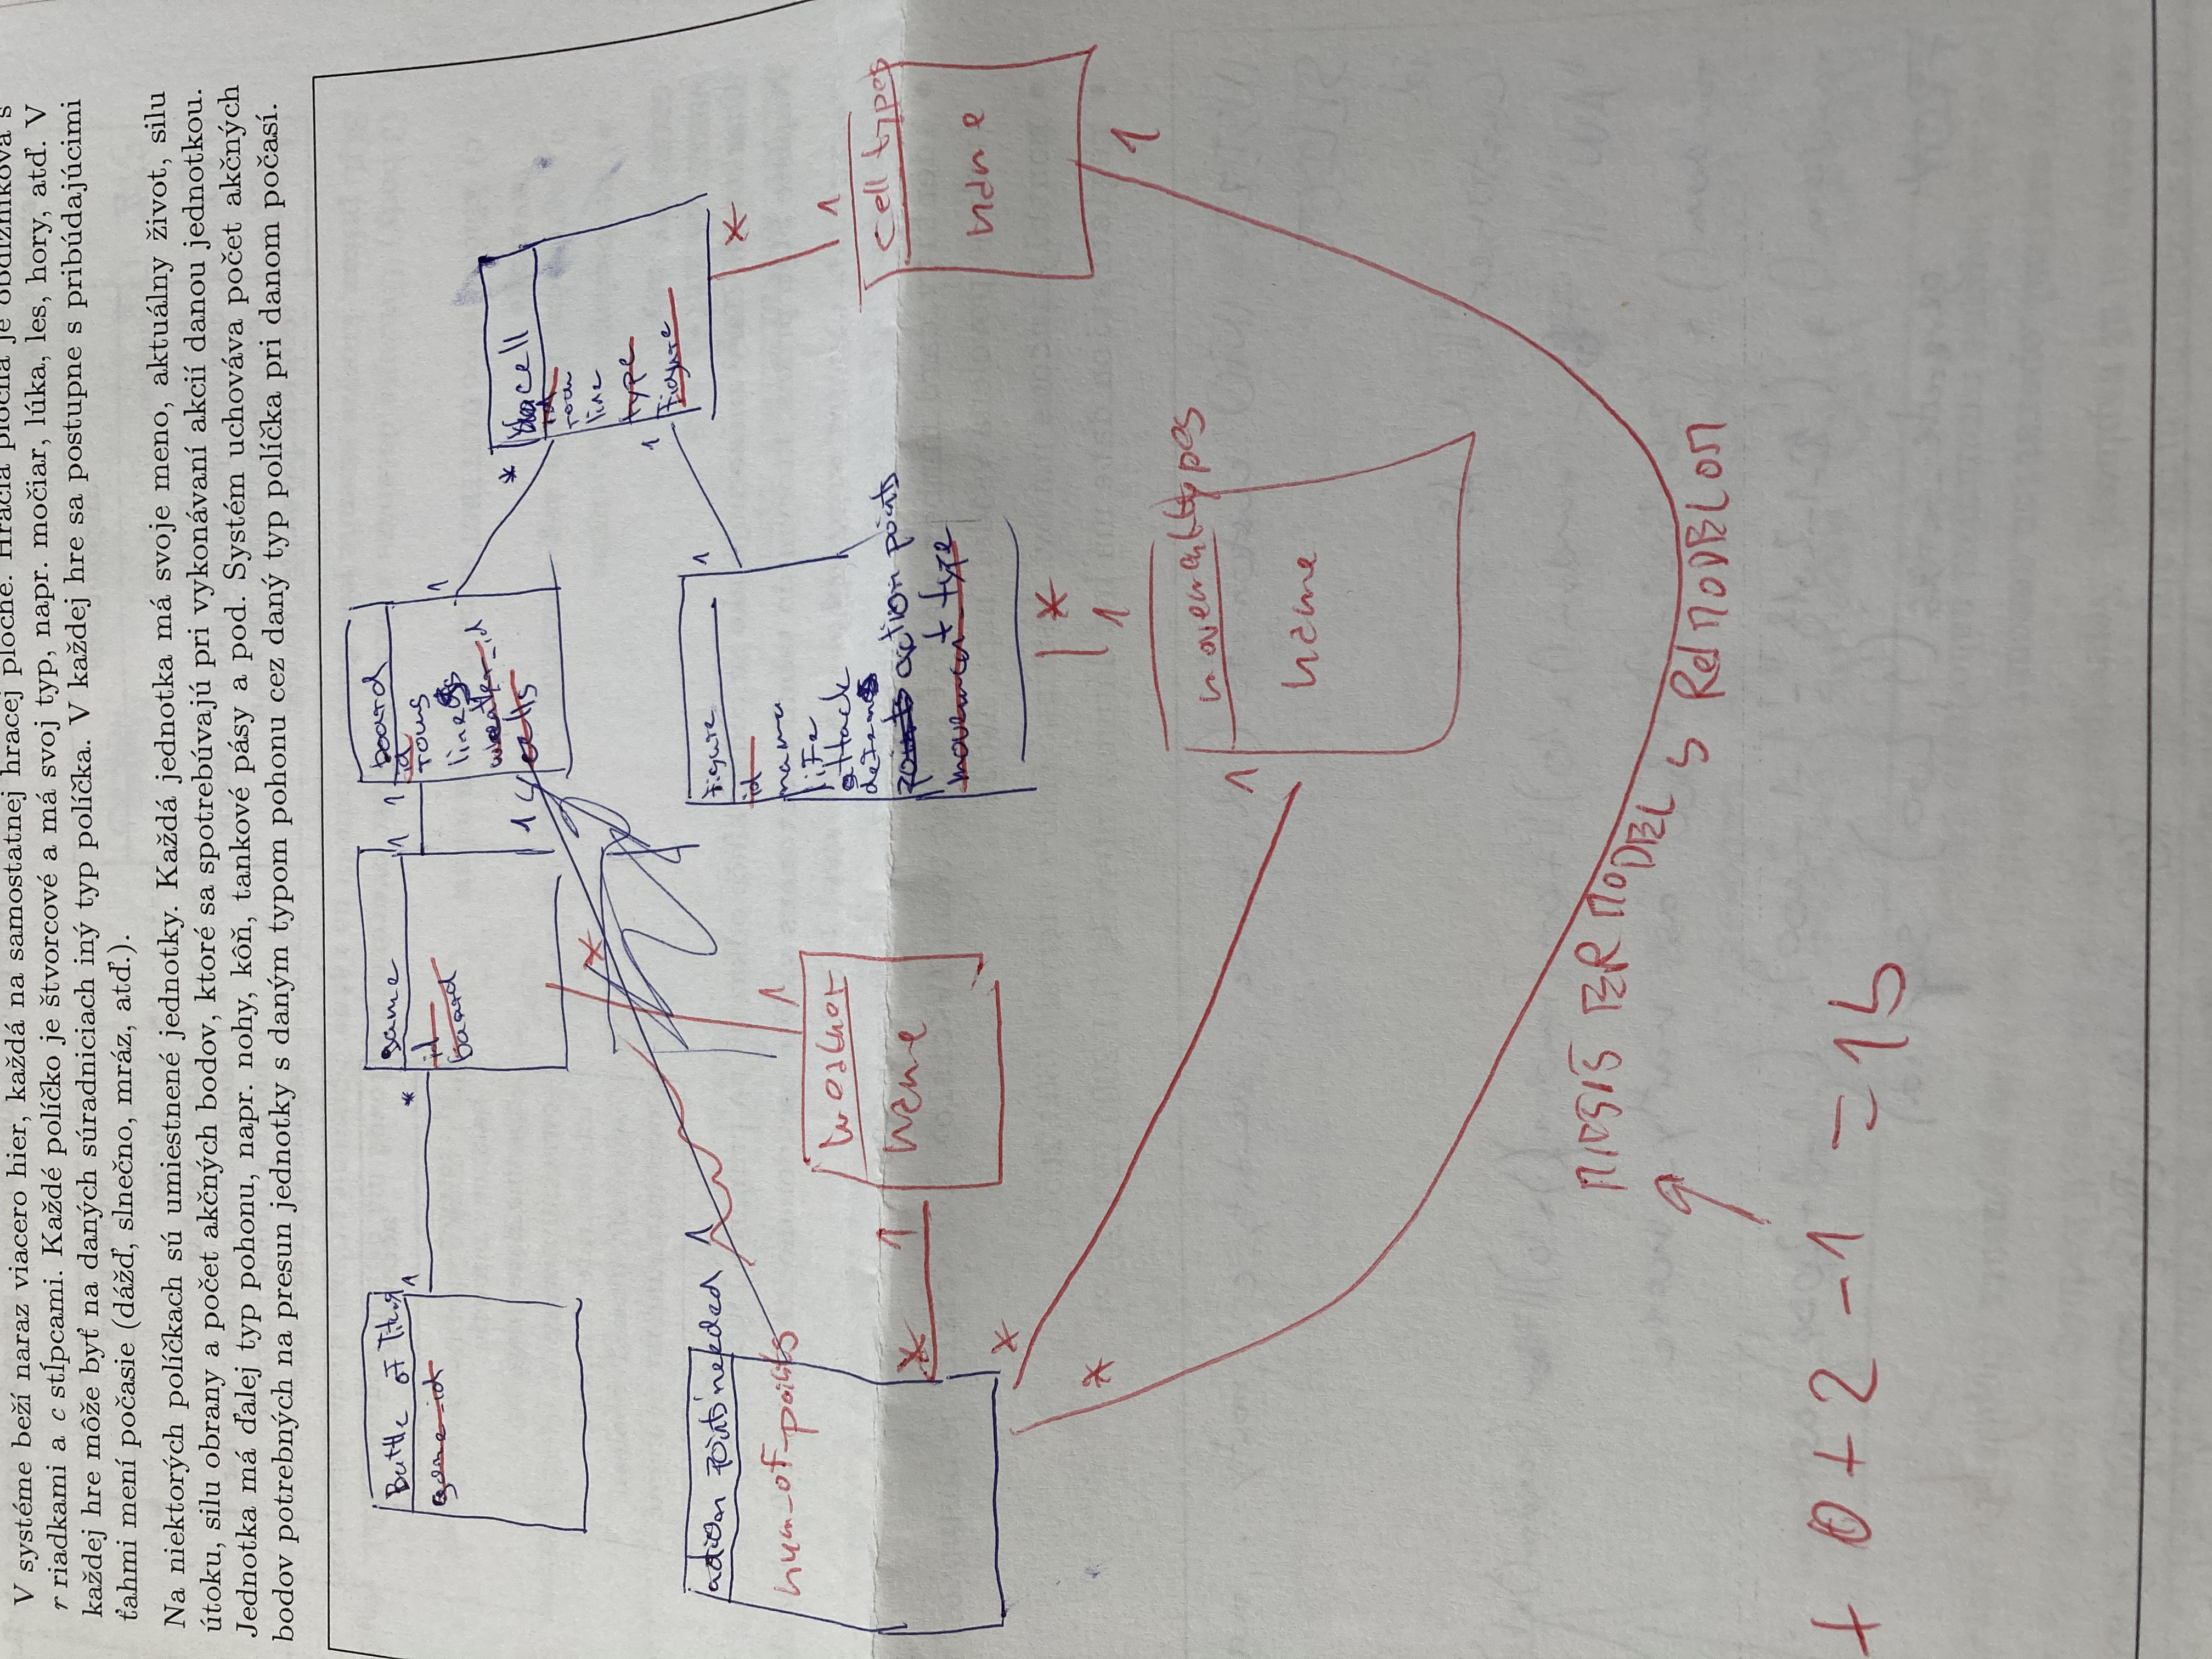 V systéme beží naraz viacero hier, každá na samostatnej hracej ploche. Hracia plocha je obdĺžniková s
r riadkami a c stĺpcami. Každé políčko je štvorcové a má svoj typ, napr. močiar, lúka, les, hory, atď. V
každej hre môže byť na daných súradniciach iný typ políčka. V každej hre sa postupne s pribúdajúcimi
ťahmi mení počasie (dážď, slnečno, mráz, atď.).
Na niektorých políčkach sú umiestnené jednotky. Každá jednotka má svoje meno, aktuálny život, silu
útoku, silu obrany a počet akčných bodov, ktoré sa spotrebúvajú pri vykonávaní akcií danou jednotkou.
Jednotka má ďalej typ pohonu, napr. nohy, kôň, tankové pásy a pod. Systém uchováva počet akčných
bodov potrebných na presun jednotky s daným typom pohonu cez daný typ políčka pri danom počasí.
Battle of Titans
game_id
1
*
game
id
board
1
1
board
id
rows
lines
wheater_id
cells
1
1
*
cell
id
row
line
type
Figure
1
*
1
action points needed
num_of_points
1
*
1
*
1
weather
name
Figure
id
name
life
attack
defens
action points
movement_type
1
*
1
cell types
name
1
*
*
1
movement types
name
MIESIS ER MODEL S Rel MODELOM
+ 0 + 2 - 1 = 15